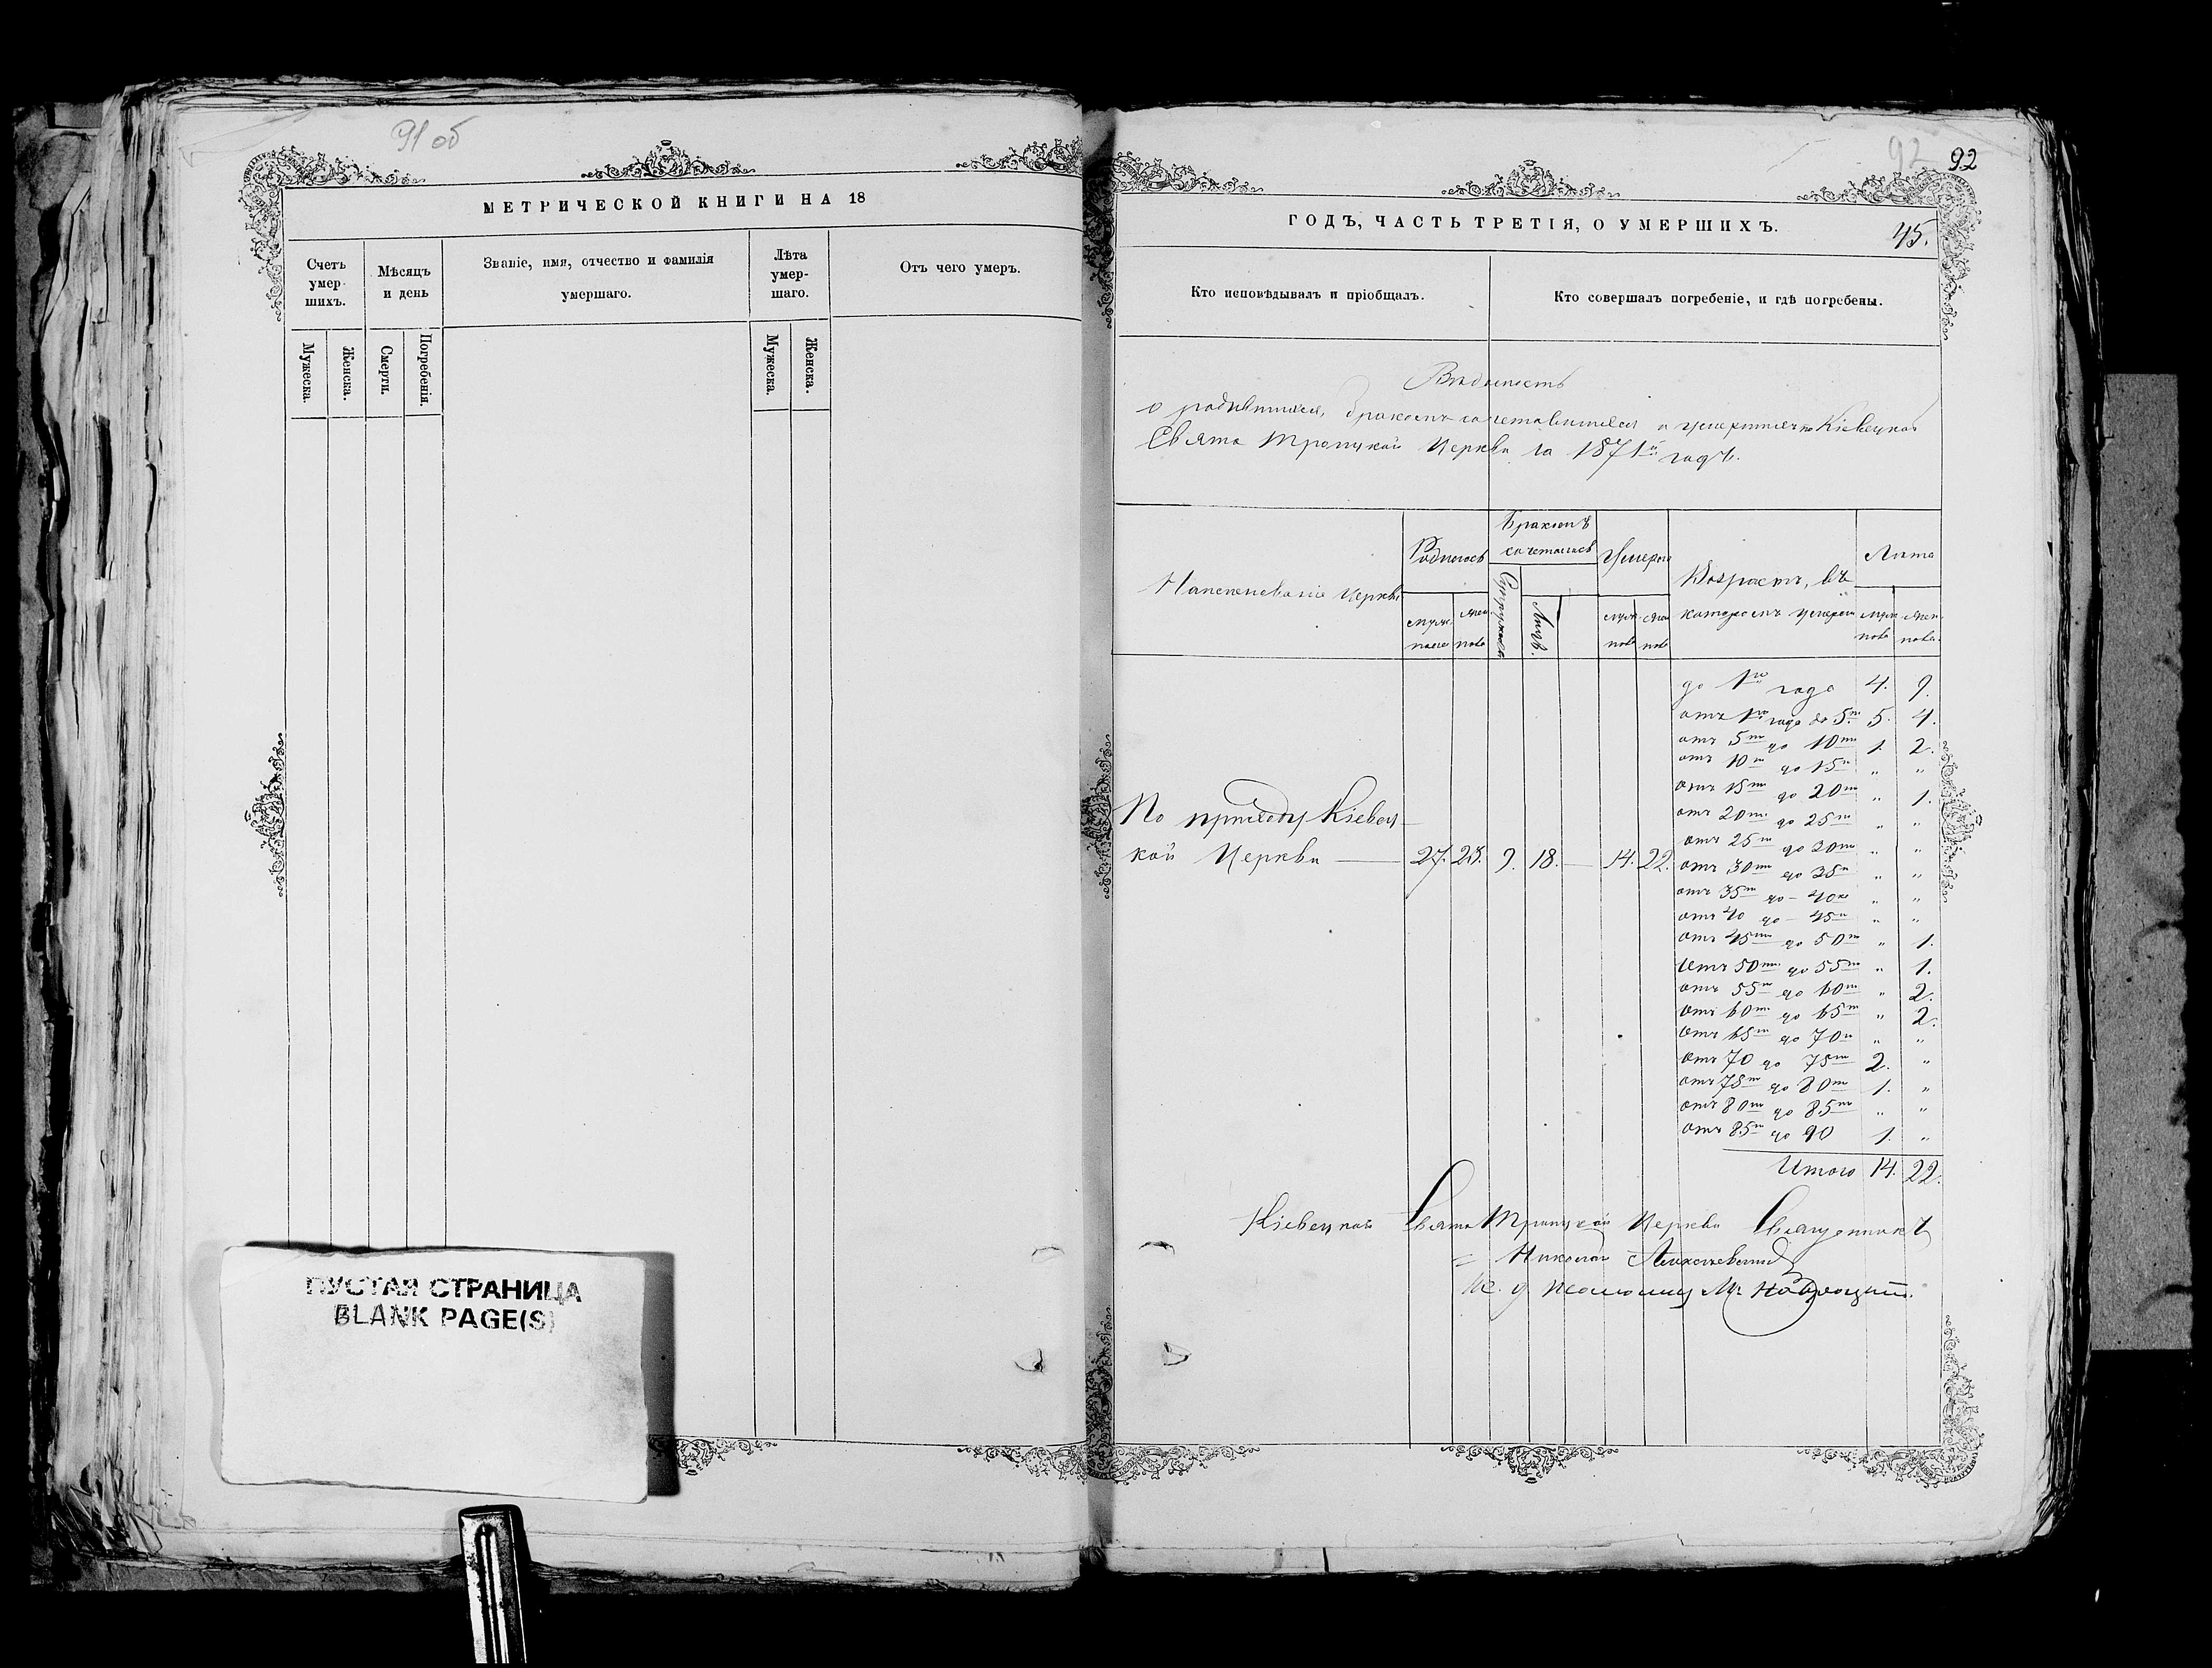 91 об
МЕТРИЧЕСКОЙ КНИГИ НА 18
Счетъ умер-шихъ.
Мѣсяцъ и день
Званіе, имя, отчество и фамилія умершаго.
Лѣта умер-шаго.
Отъ чего умеръ.
Мужеска.
Женска.
Смерти.
Погребенія.
Мужеска.
Женска.
ПУСТАЯ СТРАНИЦА
BLANK PAGE(S)
92 92
ГОДЪ, ЧАСТЬ ТРЕТІЯ, О УМЕРШИХЪ.
45.
Кто исповѣдывалъ и пріобщалъ.
Кто совершалъ погребеніе, и гдѣ погребены.
Вѣдомость
о родившихся, бракомъ сочетавшихся и умершихъ по Кіевецкой
Свято Троицкой Церкви за 1871й годъ.
Наименованіе Церкви
Родилось
Бракомъ сочеталось
Умерло
Возрастъ, въ которомъ умерли
Лѣта
Супружествъ
Лицъ.
до 1го года 4. 9.
отъ 1го года до 5ти 5. 4.
отъ 5ти до 10ти 1. 2.
отъ 10ти до 15ти " "
отъ 15ти до 20ти " 1.
отъ 20ти до 25ти " "
отъ 25ти до 30ти " "
отъ 30ти до 35ти " "
отъ 35ти до 40ка " "
отъ 40 до 45ти " "
отъ 45ти до 50ти " 1.
отъ 50ти до 55ти " 1.
отъ 55ти до 60ти " 2.
отъ 60ти до 65ти " 2.
отъ 65ти до 70ти " "
отъ 70 до 75ти 2. "
отъ 75ти до 80ти 1. "
отъ 80ти до 85ти " "
отъ 85ти до 90 1. "
По приходу Кіевец
кой Церкви 27. 9. 18. 14. 22.
Итого 14. 22.
Кіевецкой Свято Троицкой Церкви Священникъ
Николай